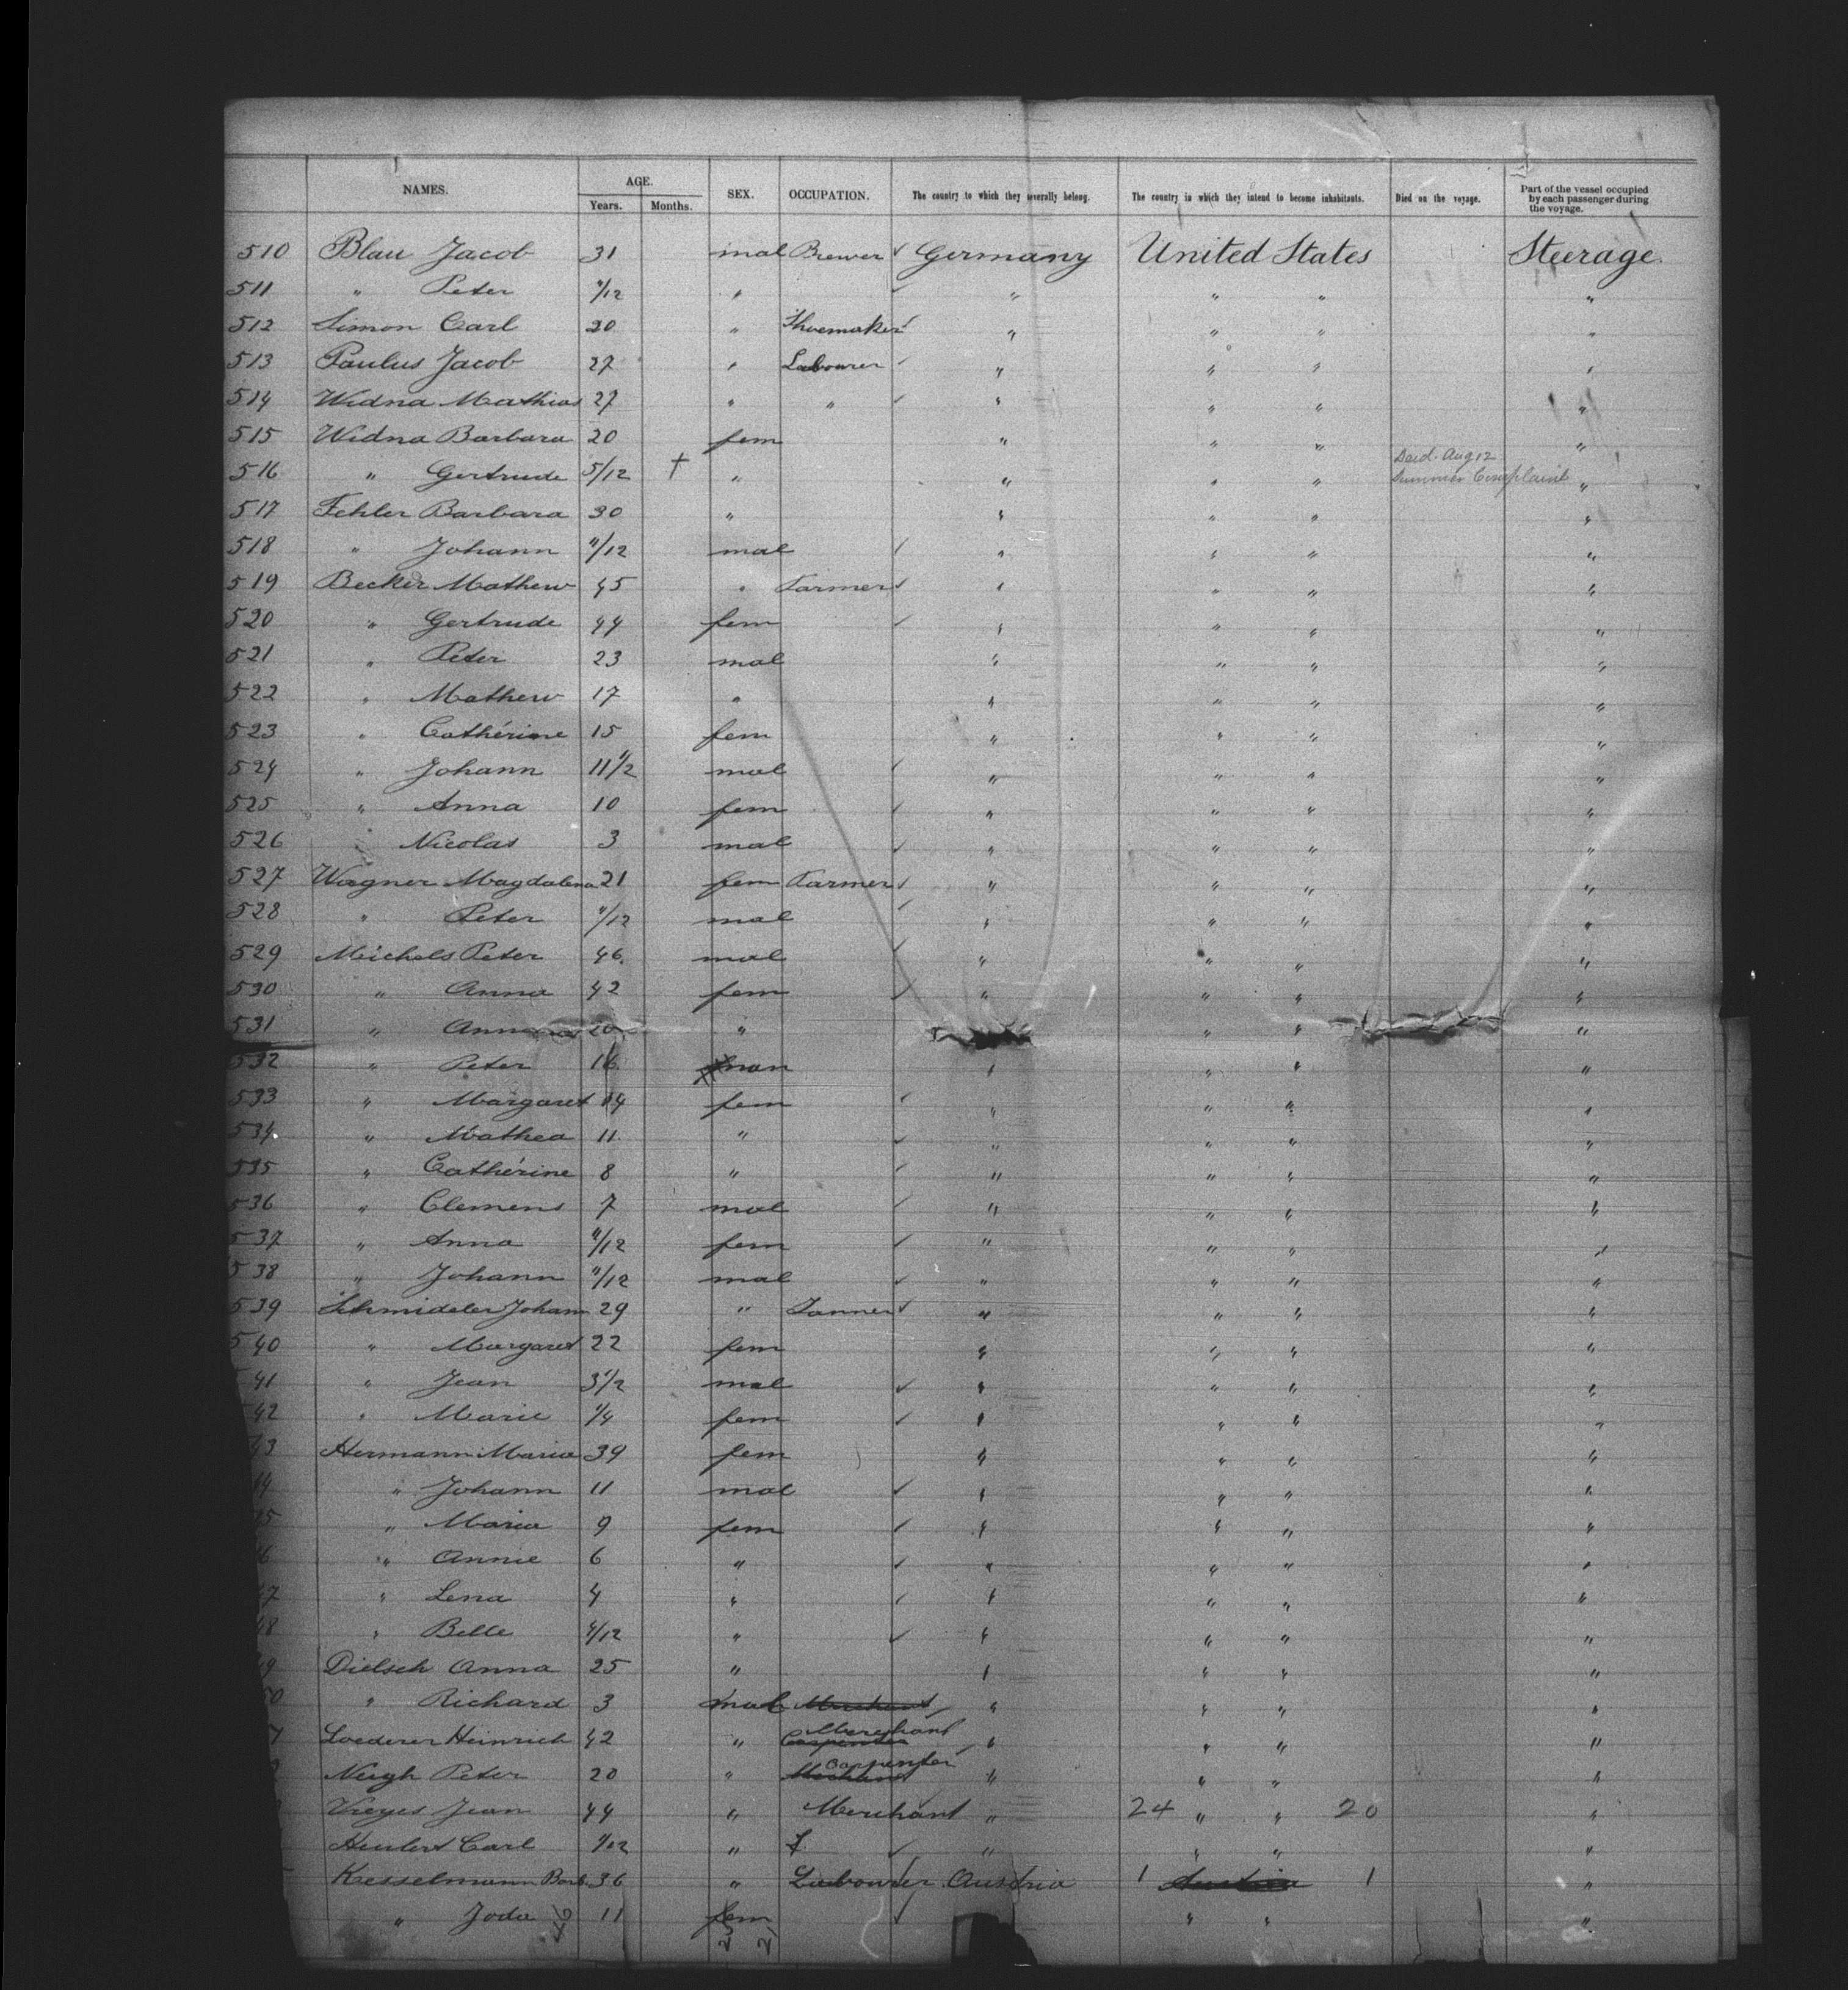 NAMES. AGE. Years. Months. SEX. OCCUPATION. The country to which they severally belong. The country in which they intend to become inhabitants. Died on the voyage. Part of the vessel occupied by each passenger during the voyage.
510 Blau Jacob 31 mal Brewer Germany United States Steerage
511 " Peter 11/12 " " " " "
512 Simon Carl 20 " Shoemaker " " " "
513 Paulus Jacob 27 " Labourer " " " "
514 Widna Mathias 27 " " " " " "
515 Widna Barbara 20 fem " " " "
516 " Gertrude 5/12 † " " " " Died. Aug 12 Summer Complaint "
517 Fehler Barbara 30 " " " " "
518 " Johann 11/12 mal " " " "
519 Becker Mathew 45 " Farmer " " " "
520 " Gertrude 44 fem " " " "
521 " Peter 23 mal " " " "
522 " Mathew 17 " " " " "
523 " Cathérine 15 fem " " " "
524 " Johann 11 1/2 mal " " " "
525 " Anna 10 fem " " " "
526 " Nicolas 3 mal " " " "
527 Wagner Magdalena 21 fem Farmer " " " "
528 " Peter 11/12 mal " " " "
529 Meichels Peter 46 mal " " " "
530 " Anna 42 fem " " " "
531 " Anna 20 " " " " "
532 " Peter 16 man " " " "
533 " Margaret 14 fem " " " "
534 " Mathea 11 " " " " "
535 " Cathérine 8 " " " " "
536 " Clemens 7 mal " " " "
537 " Anna 11/12 fem " " " "
538 " Johann 11/12 mal " " " "
539 Schmideler Johann 29 " Tanner " " " "
540 " Margaret 22 fem " " " "
41 " Jean 3 1/2 mal " " " "
42 " Marie 1/4 fem " " " "
43 Hermann Maria 39 fem " " " "
44 " Johann 11 mal " " " "
45 " Maria 9 fem " " " "
6 " Annie 6 " " " " "
47 " Lena 4 " " " " "
48 " Belle 4/12 " " " " "
49 Dielsch Anna 25 " " " " "
50 " Richard 3 mal Merchant " " " "
Loederer Heinrich 42 " Carpenter Merchant " " " "
Neigh Peter 20 " Merchant Carpenter " " " "
Vieyes Jean 44 " Merchant " 24 " " 20 "
Heulert Carl " " " " "
Kesselmann Barb. 36 " Labourer Austria 1 Austria 1 "
" Joda 11 fem " " "
46 25 21